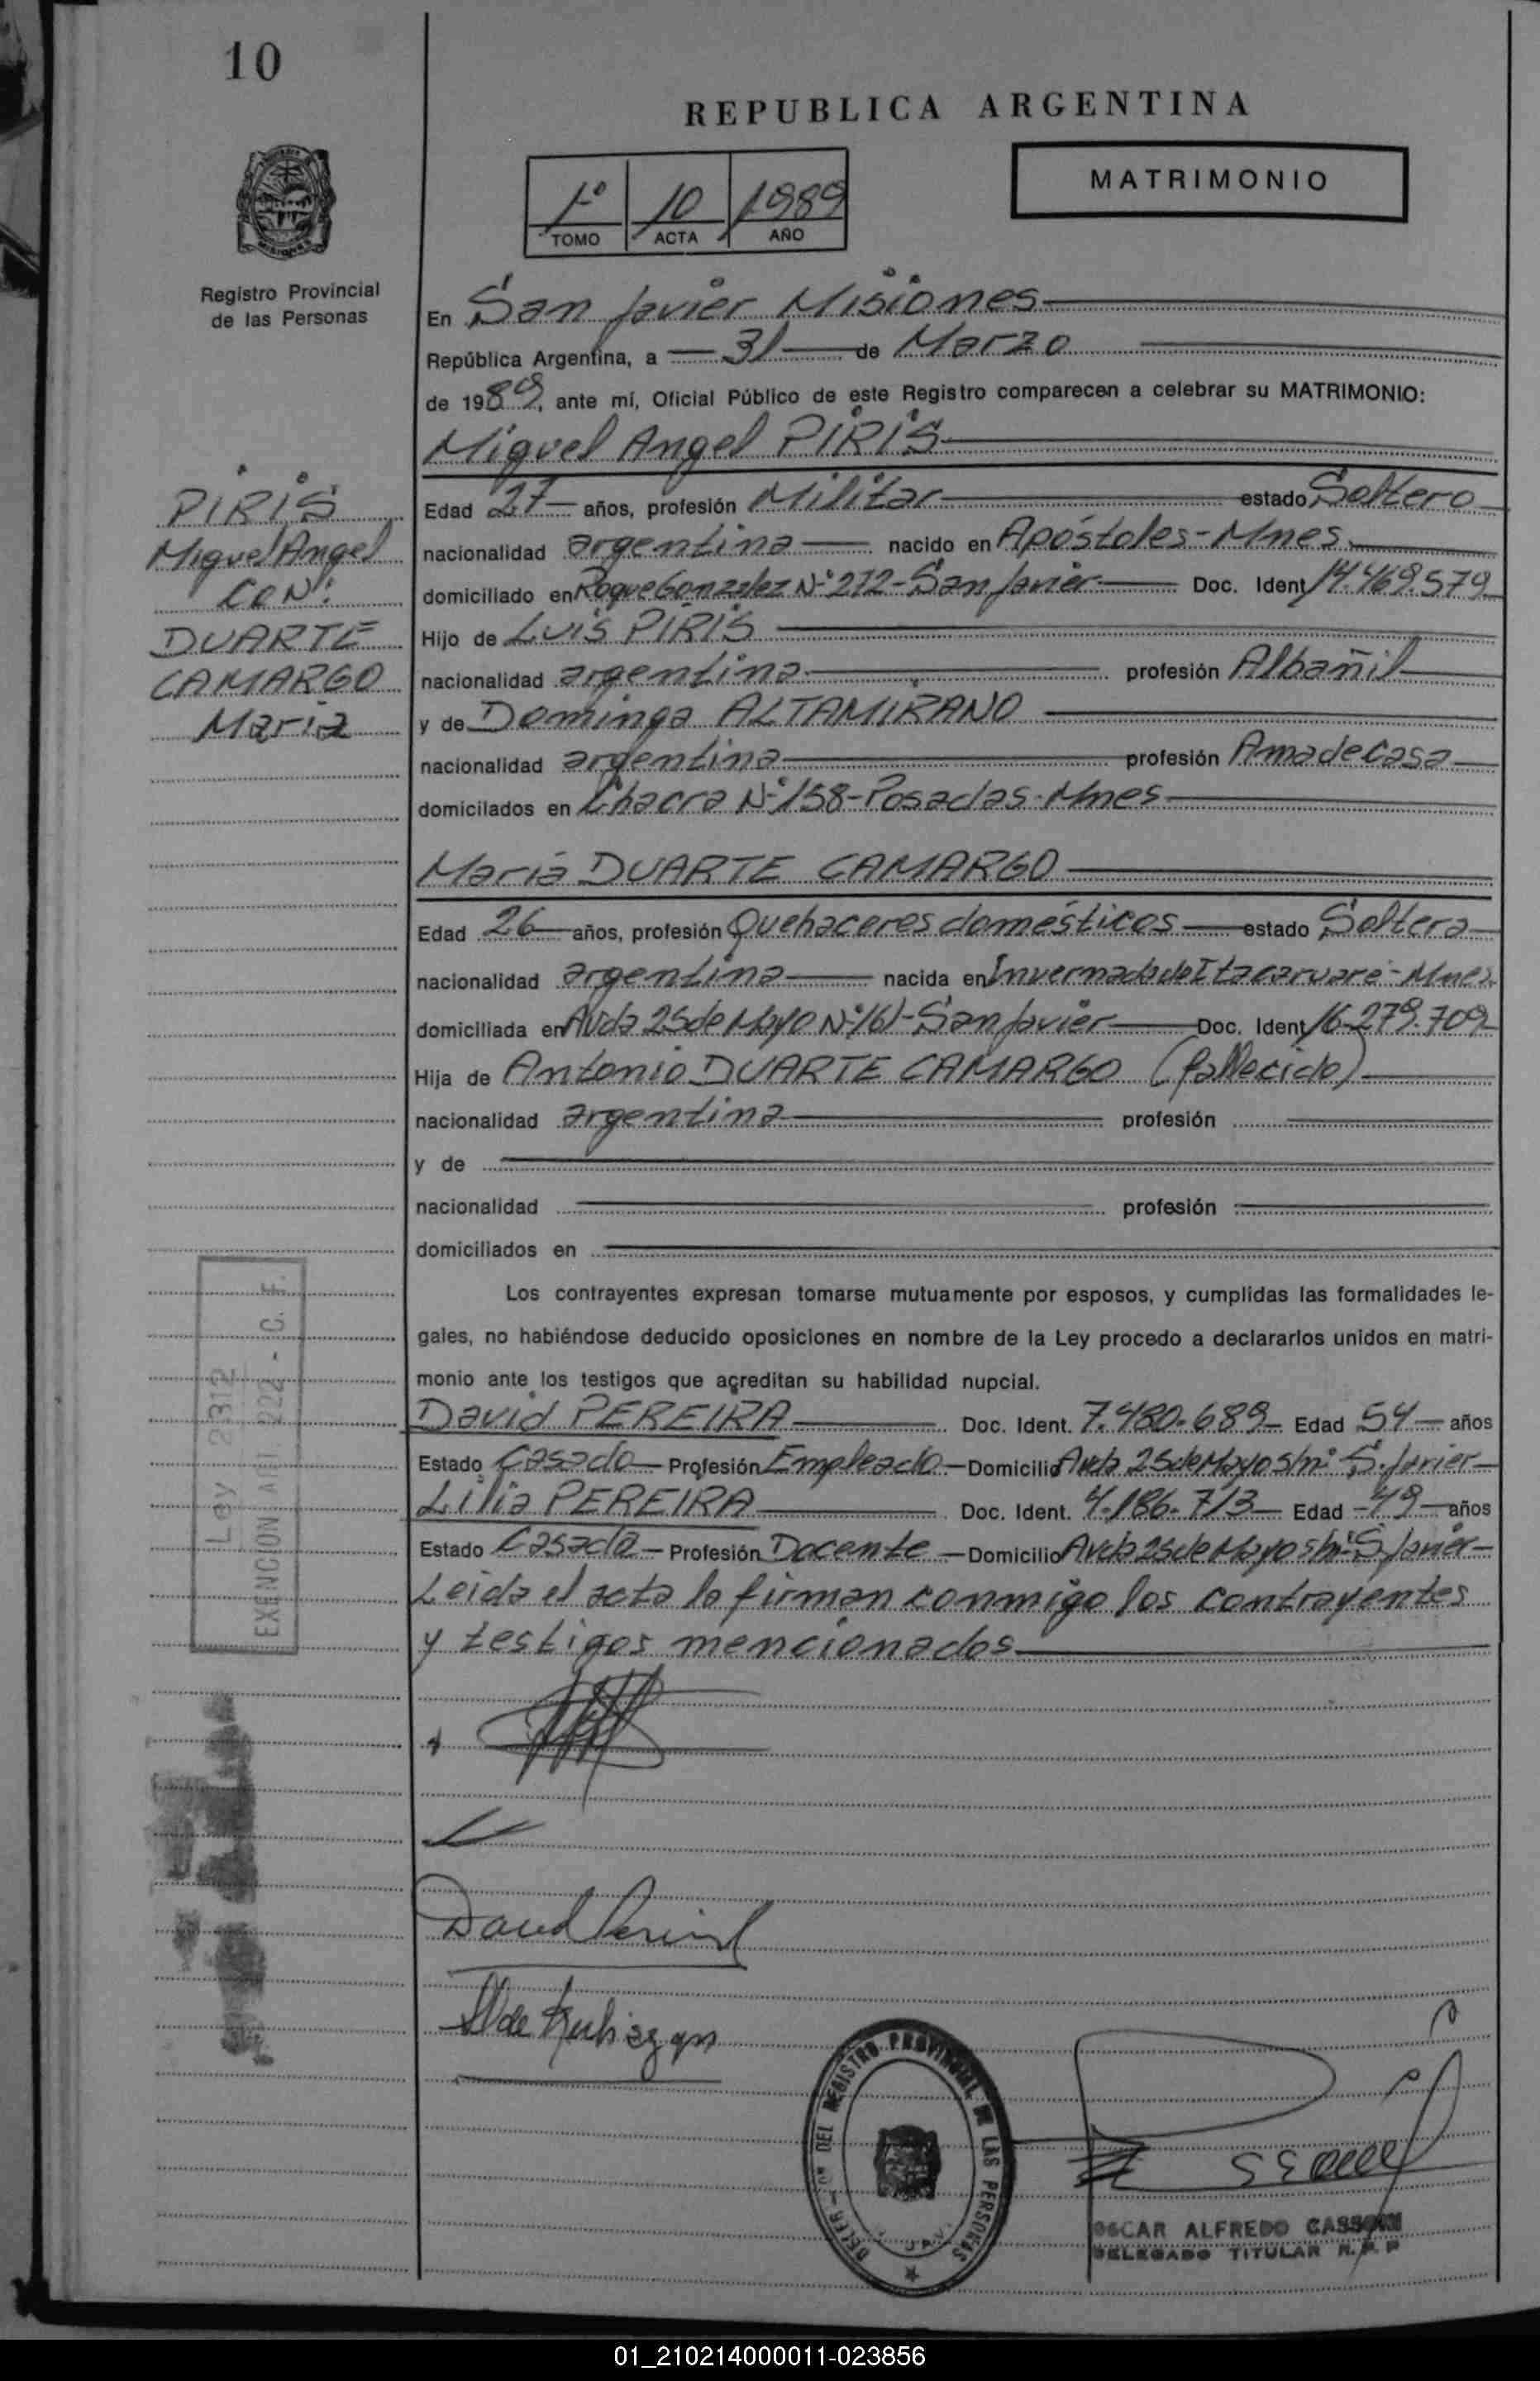 10
REPUBLICA ARGENTINA
MATRIMONIO
1º 10 1989
TOMO ACTA AÑO
Registro Provincial
de las Personas
En San Javier Misiones
República Argentina, a 31 de Marzo
de 1989, ante mí, Oficial Público de este Registro comparecen a celebrar su MATRIMONIO:
Miguel Angel PIRIS
PIRIS
Miguel Angel
CON:
DUARTE
CAMARGO
Maria
Edad 27 años, profesión Militar estado Soltero
nacionalidad argentina nacido en Apóstoles-Mnes.
domiciliado en Roque Gonzalez Nº 272-San Javier Doc. Ident 14.469.579
Hijo de Luis PIRIS
nacionalidad argentina profesión Albañil
y de Dominga ALTAMIRANO
nacionalidad argentina profesión Ama de Casa
domicilados en Chacra Nº 158-Posadas-Mnes
Maria DUARTE CAMARGO
Edad 26 años, profesión Quehaceres domésticos estado Soltera
nacionalidad argentina nacida en Invernada de Itacaruaré-Mnes
domiciliada en Avda 25 de Mayo Nº 161-San Javier Doc. Ident 16.279.709
Hija de Antonio DUARTE CAMARGO (fallecido)
nacionalidad argentina profesión
y de
nacionalidad profesión
domiciliados en
Los contrayentes expresan tomarse mutuamente por esposos, y cumplidas las formalidades le-
gales, no habiéndose deducido oposiciones en nombre de la Ley procedo a declararlos unidos en matri-
monio ante los testigos que acreditan su habilidad nupcial.
David PEREIRA Doc. Ident. 7.480.689 Edad 54 años
Estado Casado Profesión Empleado Domicilio Avda 25 de Mayo s/nº S. Javier
Lilia PEREIRA Doc. Ident. 4.186.713 Edad 49 años
Estado Casada Profesión Docente Domicilio Avda 25 de Mayo s/nº S Javier
Leida el acta la firman conmigo los contrayentes
y testigos mencionados
Ley 2312
EXENCION ART. 222 - C. F.
David Pereira
REGISTRO PROVINCIAL DE LAS PERSONAS
OSCAR ALFREDO
DELEGADO TITULAR R. P. P
01_210214000011-023856